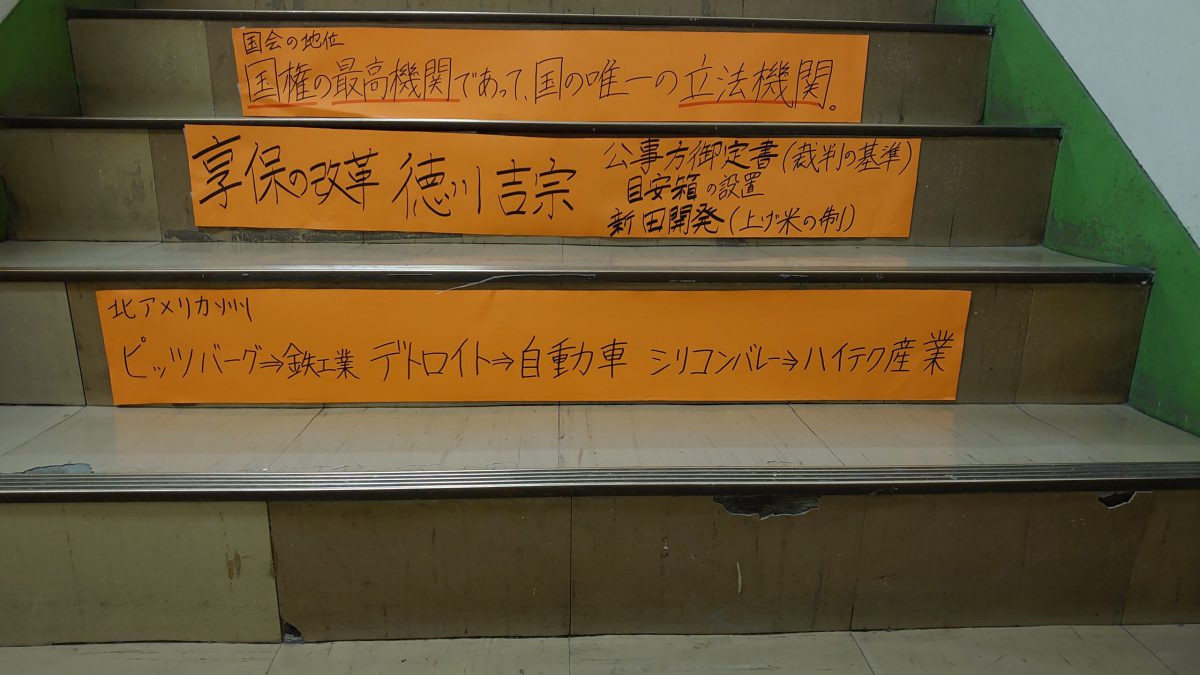 国会の地位
国権の最高機関であって、国の唯一の立法機関。
享保の改革 徳川吉宗
公事方御定書(裁判の基準)
目安箱の設置
新田開発(上げ米の制)
北アメリカ州
ピッツバーグ⇒鉄工業 デトロイト⇒自動車 シリコンバレー→ハイテク産業